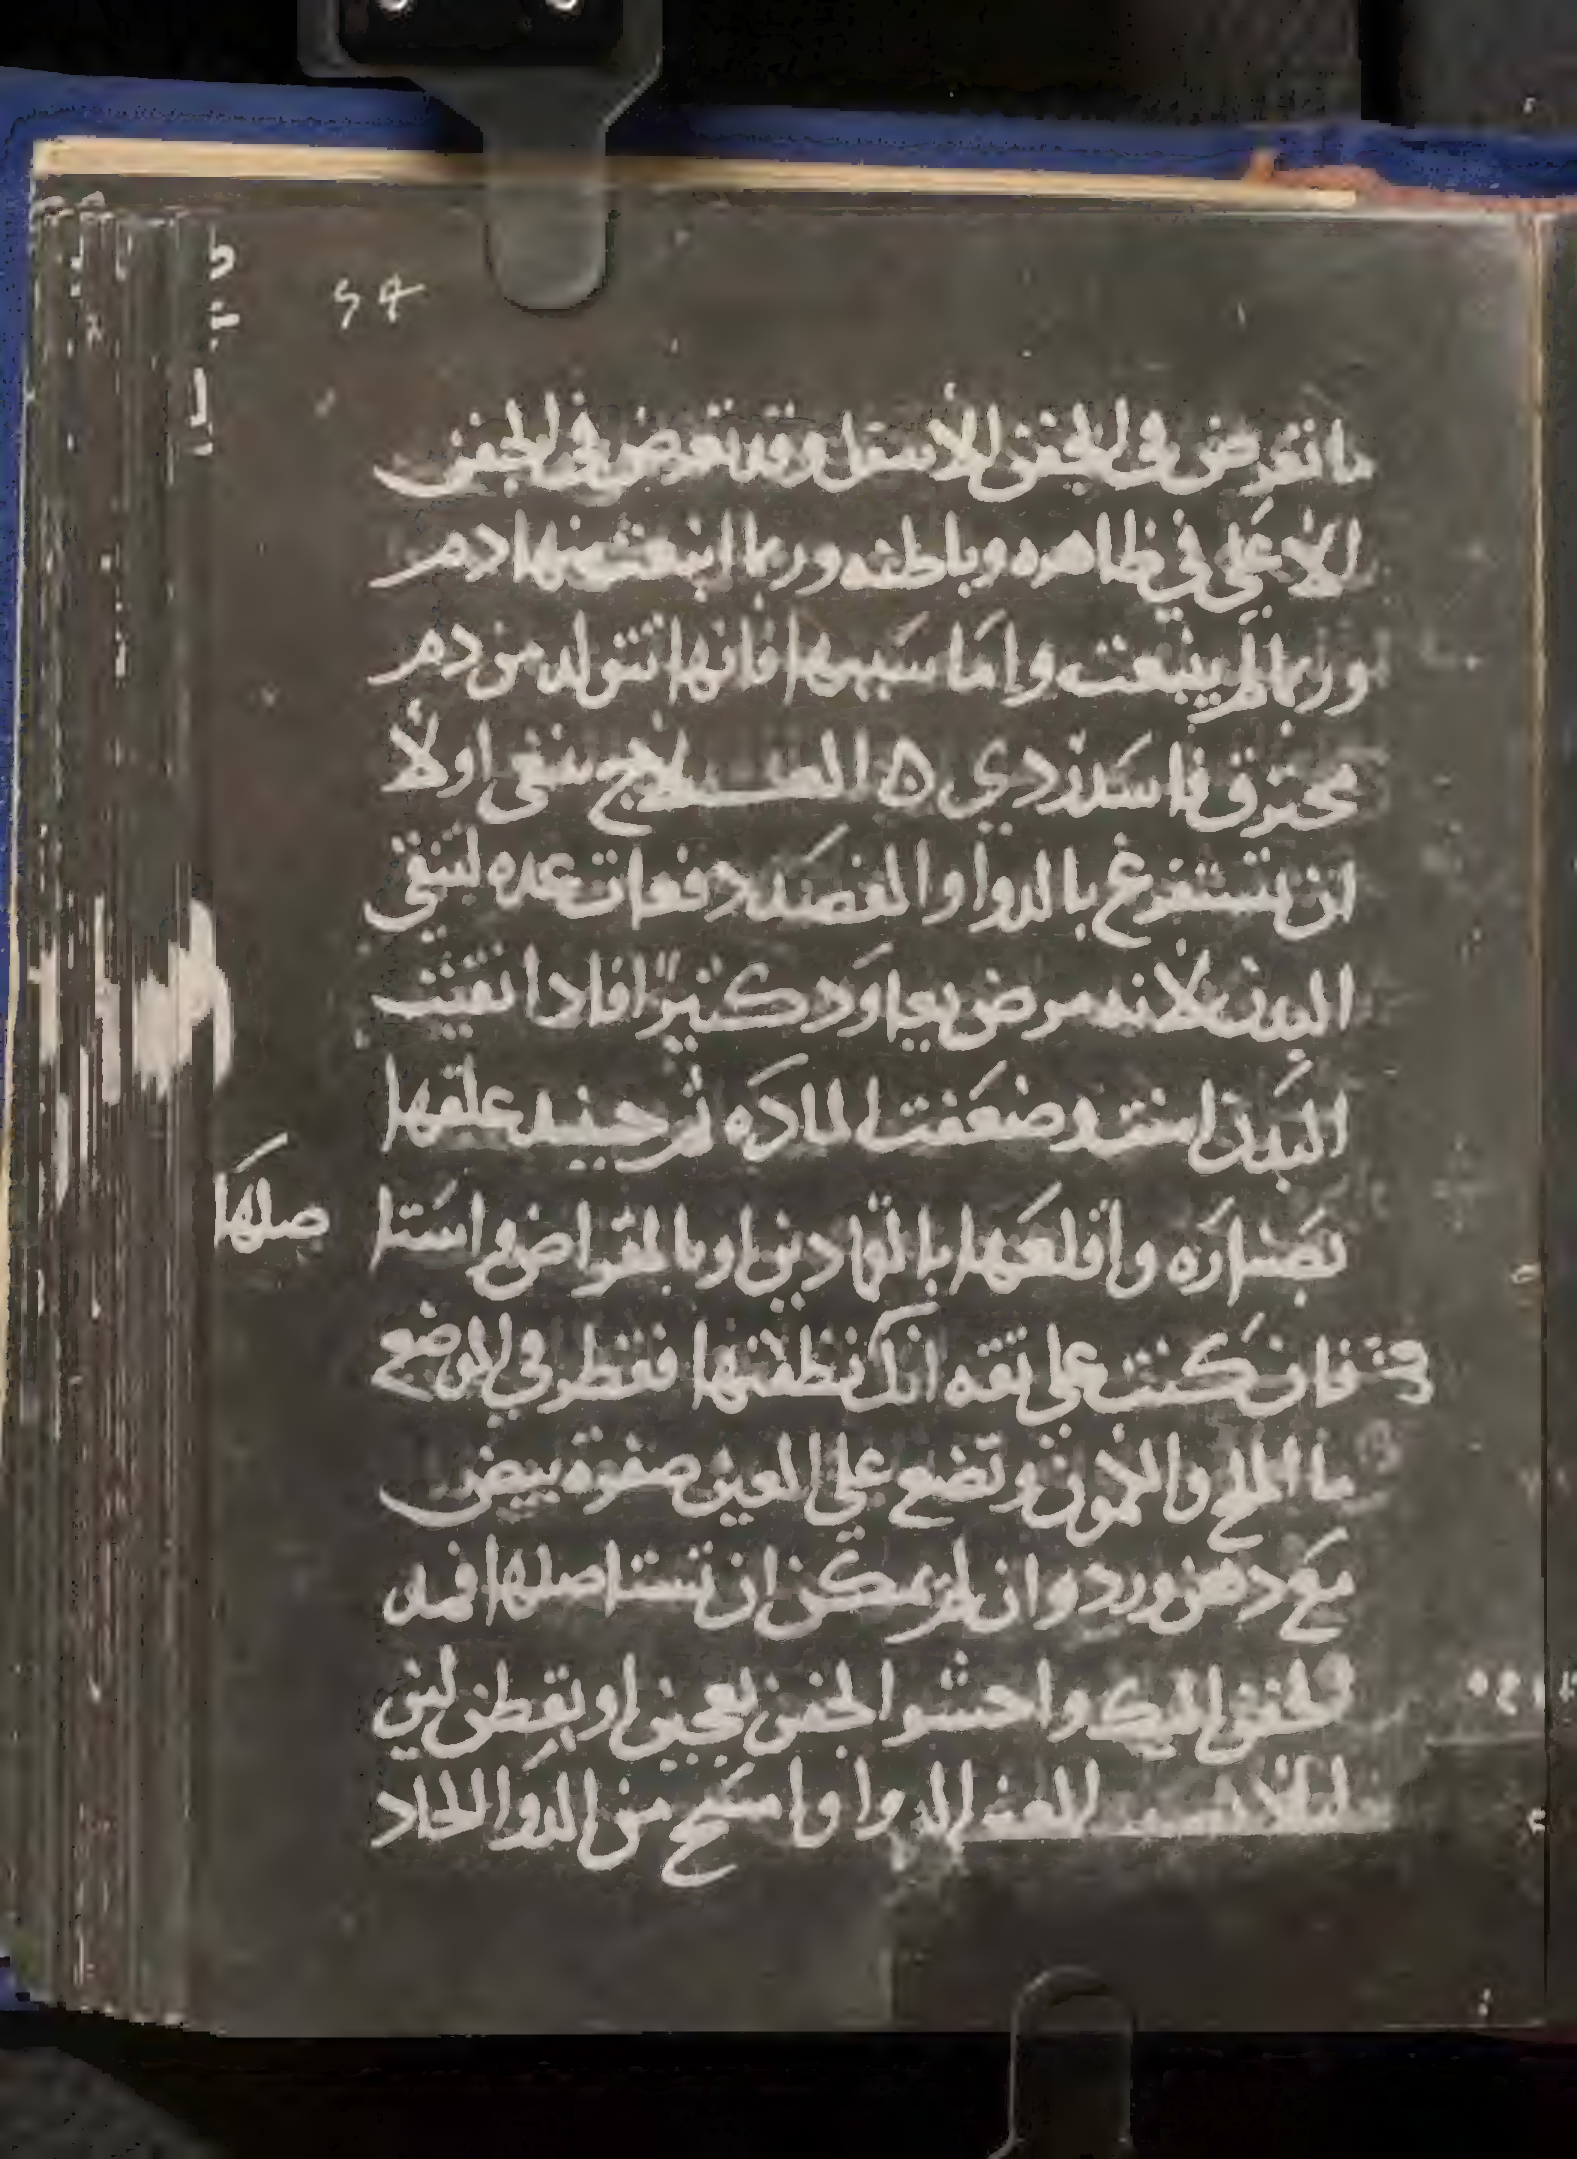 54
ما تعرض في الجفن الاسفل وقد تعرض في الجفن
الأعلي في ظاهره وباطنه وربما انبعث منها دم
وربما لم ينبعث واما سببها فانها تتولد من دم
محترق فاسد ردي ه العلاج ينبغي اولاً
ان تستفرغ بالدوا والفصد دفعات عده لينقي
البدن لانه مرض يعاود كثيرًا فاذا نقيت
البدن وضعفت الماده ثم حينيد علقها
بصناره واقلعها بالقمادين او بالمقراض واستا صلها
فان كنت علي ثقه انك نظفتها فقطر في الموضع
ما الملح والكمون وتضع علي العين صفرة بيض
مع دهن ورد وان لم يمكن ان تستاصلها فمد
الجفن اليك واحشو الجفن بعجين او بقطن لين
ليلا العين الدوا وامسح من الدوا الحاد